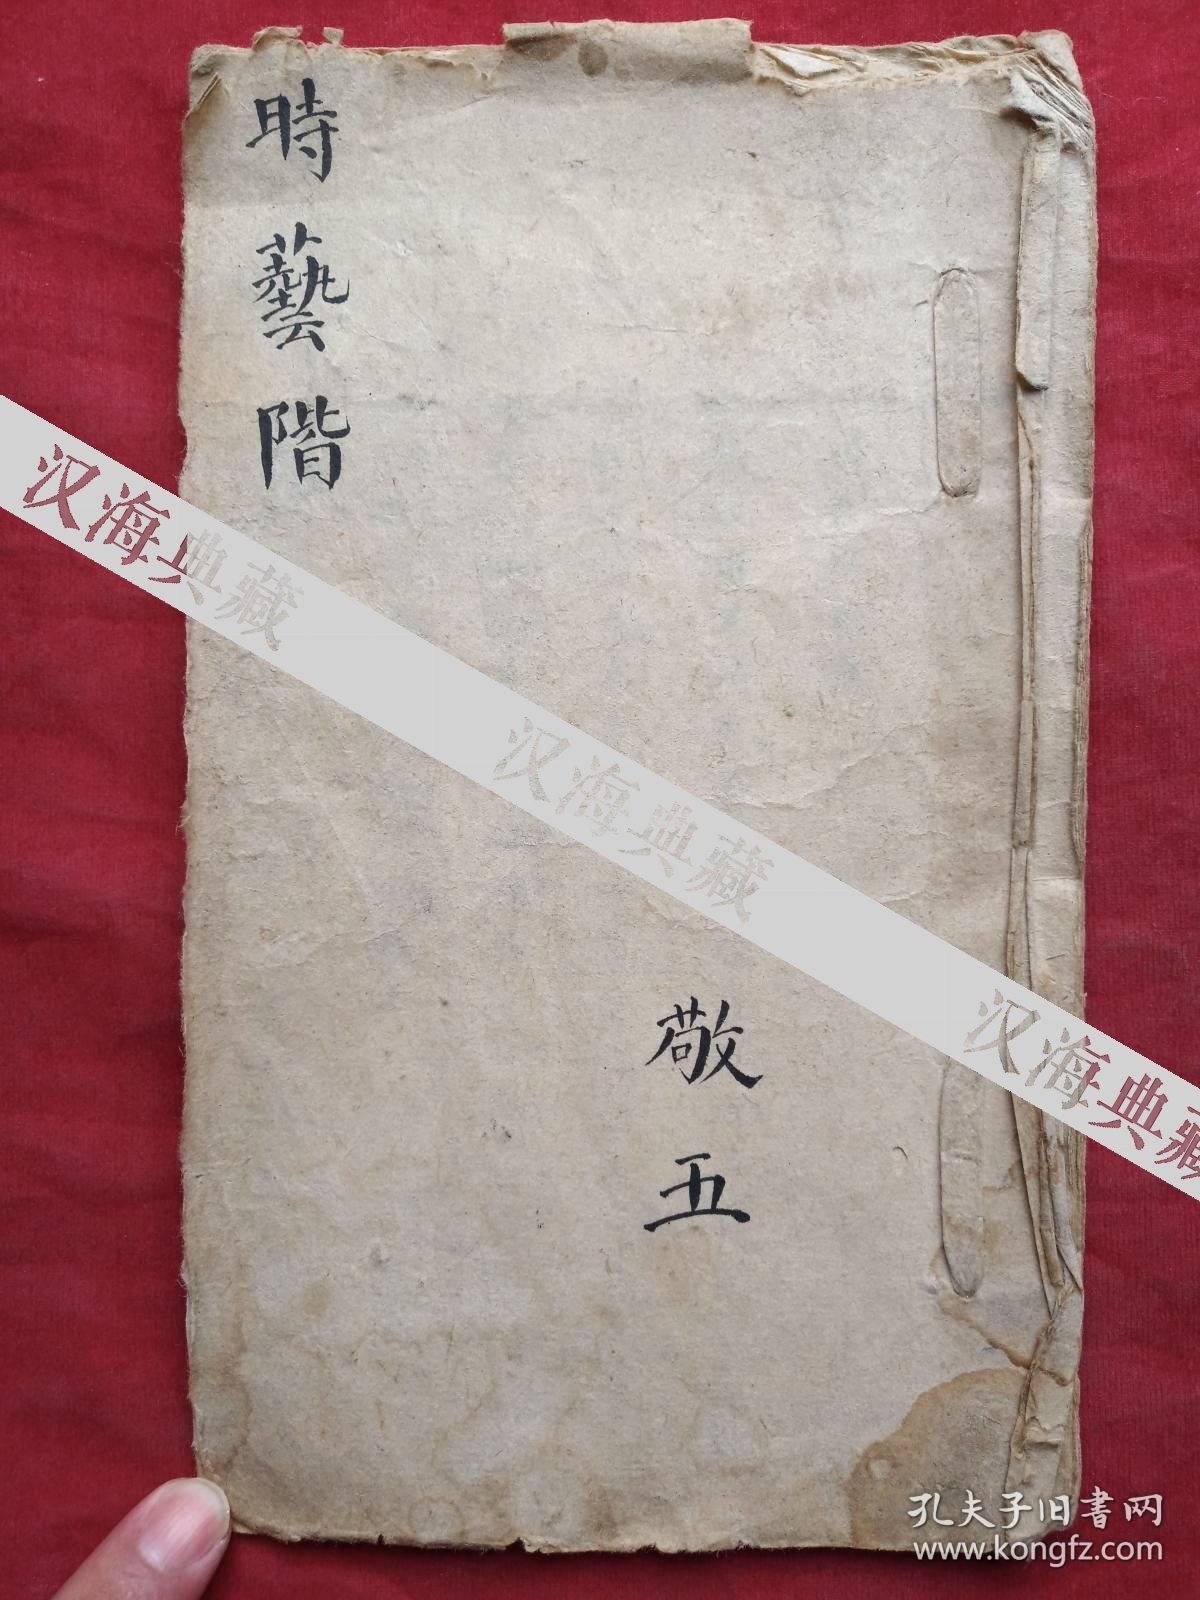 時藝階
敬五
汉海典藏
汉海典藏
汉海典藏
孔夫子旧書网
www.kongfz.com